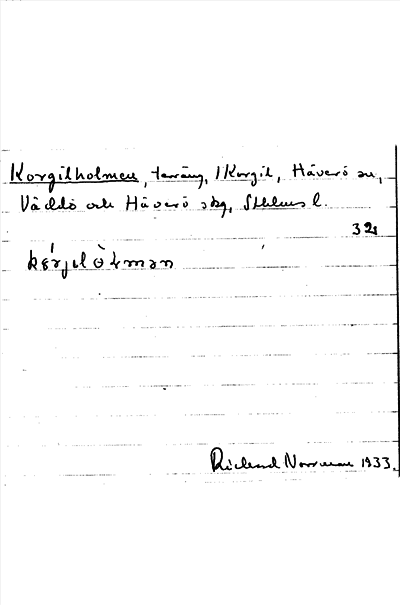 Korgilholmen, terräng, 1 Korgil, Häverö sn,
Väddö och Häverö skg, Sthlms l.
32
Rickard Norrman 1933.